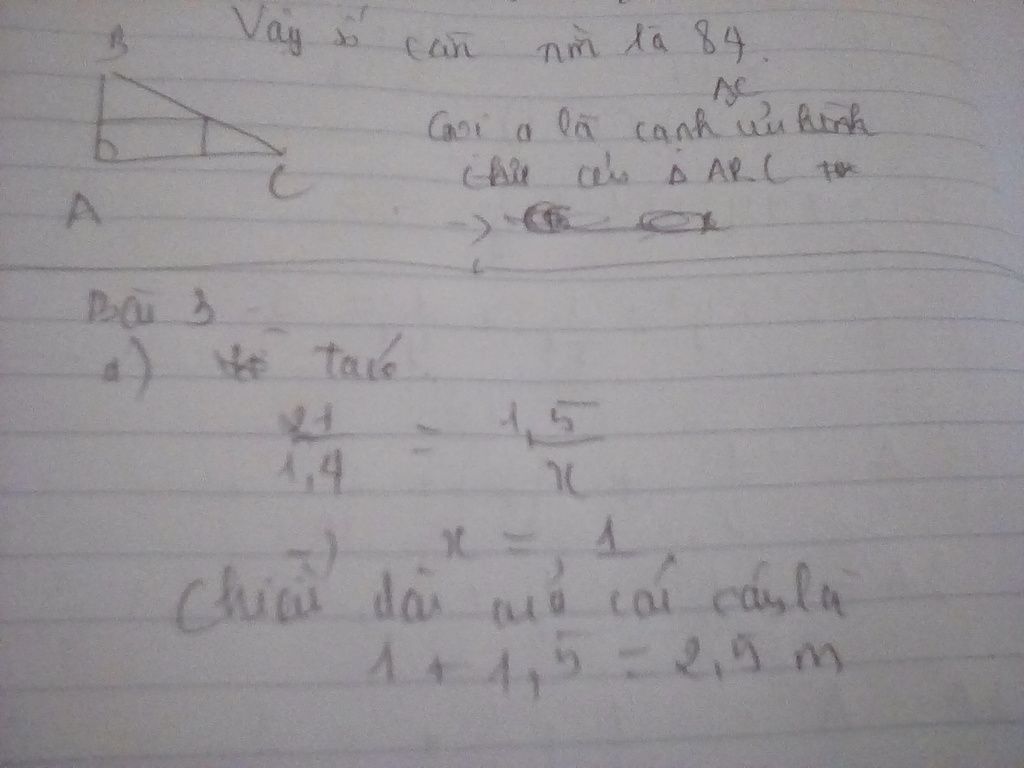 Vậy số cần tìm là 84.
B
A
C
AC
Gọi a là cạnh của hình
của Δ ABC
Bài 3
a) ta có
21
1,4
=
1,5
x
x = 1
Chiều dài của cái cây là
1 + 1,5 = 2,5 m